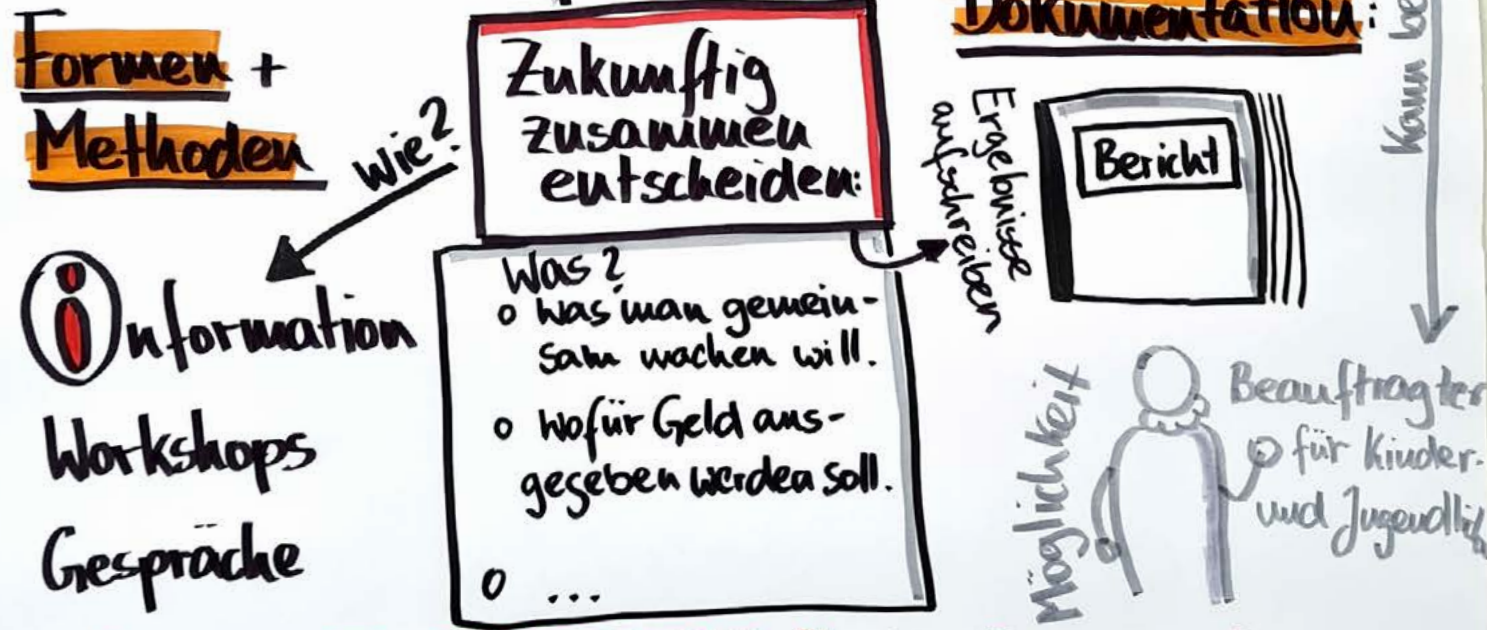 Formen +
Methoden
Wie?
Information
Workshops
Gespräche
Zukunftig
zusammen
entscheiden:
Was?
o Was man gemein-
sam machen will.
o Wofür Geld aus-
gegeben werden soll.
o ...
Dokumentation:
Ergebnisse
aufschreiben
Bericht
Kann
Möglichkeit
Beauftragter
für Kinder-
und Jugendlich